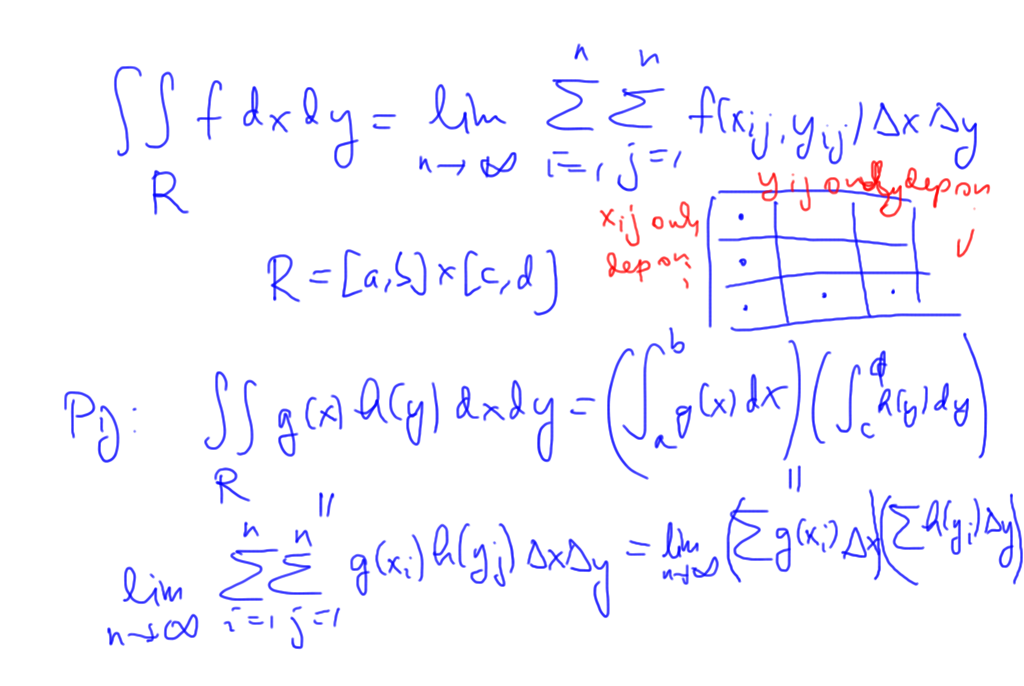 ∬_R f dx dy = lim_{n→∞} Σ_{i=1}^{n} Σ_{j=1}^{n} f(x_{ij}, y_{ij}) Δx Δy
y_{ij} only dep on j
x_{ij} only
dep on i
R = [a,b] × [c,d]
∬_R g(x) h(y) dx dy = (∫_a^b g(x) dx) (∫_c^d h(y) dy)
|| ||
lim_{n→∞} Σ_{i=1}^{n} Σ_{j=1}^{n} g(x_i) h(y_j) Δx Δy = lim_{n→∞} (Σ g(x_i) Δx) (Σ h(y_j) Δy)